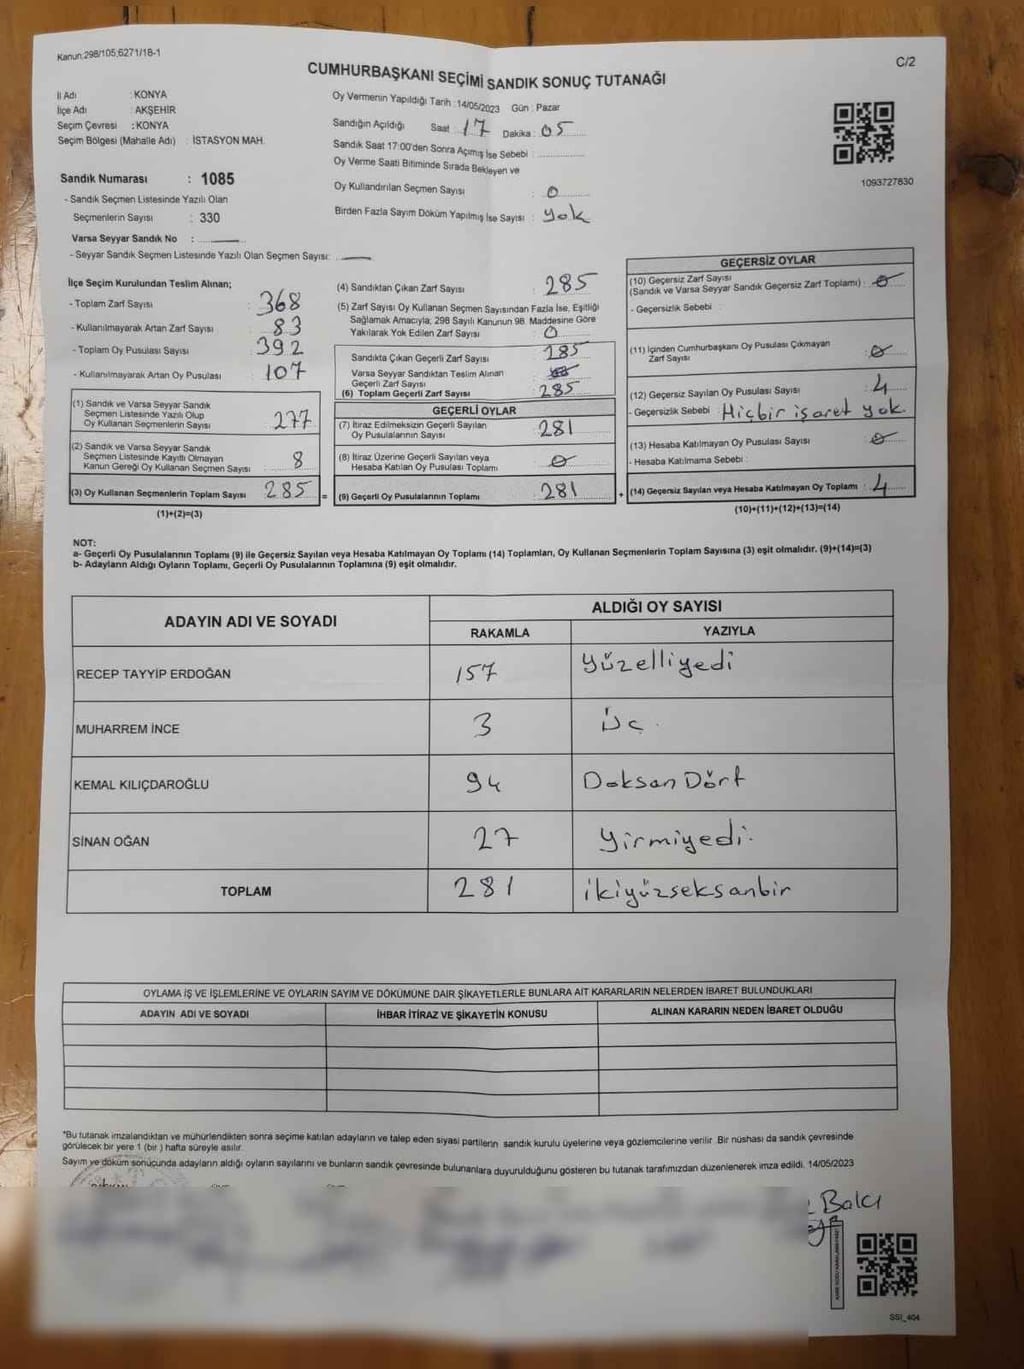 Kanun:298/105;6271/18-1
C/2
CUMHURBAŞKANI SEÇİMİ SANDIK SONUÇ TUTANAĞI
İl Adı : KONYA
İlçe Adı : AKŞEHİR
Seçim Çevresi : KONYA
Seçim Bölgesi (Mahalle Adı) : İSTASYON MAH.
Oy Vermenin Yapıldığı Tarih :14/05/2023 Gün : Pazar
Sandığın Açıldığı Saat : 17 Dakika : 05
Sandık Saat 17:00'den Sonra Açımış İse Sebebi :
Oy Verme Saati Bitiminde Sırada Bekleyen ve
Oy Kullandırılan Seçmen Sayısı : 0
Birden Fazla Sayım Döküm Yapılmış İse Sayısı : yok
1093727830
Sandık Numarası : 1085
- Sandık Seçmen Listesinde Yazılı Olan
Seçmenlerin Sayısı : 330
Varsa Seyyar Sandık No :
- Seyyar Sandık Seçmen Listesinde Yazılı Olan Seçmen Sayısı:
İlçe Seçim Kurulundan Teslim Alınan;
- Toplam Zarf Sayısı : 368
- Kullanılmayarak Artan Zarf Sayısı : 83
- Toplam Oy Pusulası Sayısı : 392
- Kullanılmayarak Artan Oy Pusulası : 107
(1) Sandık ve Varsa Seyyar Sandık
Seçmen Listesinde Yazılı Olup
Oy Kullanan Seçmenlerin Sayısı : 277
(2) Sandık ve Varsa Seyyar Sandık
Seçmen Listesinde Kayıtlı Olmayan
Kanun Gereği Oy Kullanan Seçmen Sayısı 8
(3) Oy Kullanan Seçmenlerin Toplam Sayısı : 285 =
(1)+(2)=(3)
(4) Sandıktan Çıkan Zarf Sayısı : 285
(5) Zarf Sayısı Oy Kullanan Seçmen Sayısından Fazla İse, Eşitliği
Sağlamak Amacıyla; 298 Sayılı Kanunun 98. Maddesine Göre
Yakılarak Yok Edilen Zarf Sayısı : 0
Sandıkta Çıkan Geçerli Zarf Sayısı : 285
Varsa Seyyar Sandıktan Teslim Alınan
Geçerli Zarf Sayısı
(6) Toplam Geçerli Zarf Sayısı : 285
GEÇERLİ OYLAR
(7) İtiraz Edilmeksizin Geçerli Sayılan
Oy Pusulalarının Sayısı : 281
(8) İtiraz Üzerine Geçerli Sayılan veya
Hesaba Katılan Oy Pusulası Toplamı : 0
(9) Geçerli Oy Pusulalarının Toplamı : 281 +
GEÇERSİZ OYLAR
(10) Geçersiz Zarf Sayısı
(Sandık ve Varsa Seyyar Sandık Geçersiz Zarf Toplamı) : 0
- Geçersizlik Sebebi :
(11) İçinden Cumhurbaşkanı Oy Pusulası Çıkmayan
Zarf Sayısı : 0
(12) Geçersiz Sayılan Oy Pusulası Sayısı : 4
- Geçersizlik Sebebi : Hiçbir işaret yok.
(13) Hesaba Katılmayan Oy Pusulası Sayısı : 0
- Hesaba Katılmama Sebebi :
(14) Geçersiz Sayılan veya Hesaba Katılmayan Oy Toplamı : 4
(10)+(11)+(12)+(13)=(14)
NOT:
a- Geçerli Oy Pusulalarının Toplamı (9) ile Geçersiz Sayılan veya Hesaba Katılmayan Oy Toplamı (14) Toplamları, Oy Kullanan Seçmenlerin Toplam Sayısına (3) eşit olmalıdır. (9)+(14)=(3)
b- Adayların Aldığı Oyların Toplamı, Geçerli Oy Pusulalarının Toplamına (9) eşit olmalıdır.
ADAYIN ADI VE SOYADI ALDIĞI OY SAYISI
RAKAMLA YAZIYLA
RECEP TAYYİP ERDOĞAN 157 yüzelliyedi
MUHARREM İNCE 3 Üç.
KEMAL KILIÇDAROĞLU 94 Doksan Dört
SİNAN OĞAN 27 yirmiyedi.
TOPLAM 281 ikiyüzseksanbir
OYLAMA İŞ VE İŞLEMLERİNE VE OYLARIN SAYIM VE DÖKÜMÜNE DAİR ŞİKAYETLERLE BUNLARA AİT KARARLARIN NELERDEN İBARET BULUNDUKLARI
ADAYIN ADI VE SOYADI İHBAR İTİRAZ VE ŞİKAYETİN KONUSU ALINAN KARARIN NEDEN İBARET OLDUĞU
*Bu tutanak imzalandıktan ve mühürlendikten sonra seçime katılan adayların ve talep eden siyasi partilerin sandık kurulu üyelerine veya gözlemcilerine verilir. Bir nüshası da sandık çevresinde
görülecek bir yere 1 (bir ) hafta süreyle asılır.
Sayım ve döküm sonucunda adayların aldığı oyların sayılarını ve bunların sandık çevresinde bulunanlara duyurulduğunu gösteren bu tutanak tarafımızdan düzenlenerek imza edildi. 14/05/2023
Balcı
SSI_404